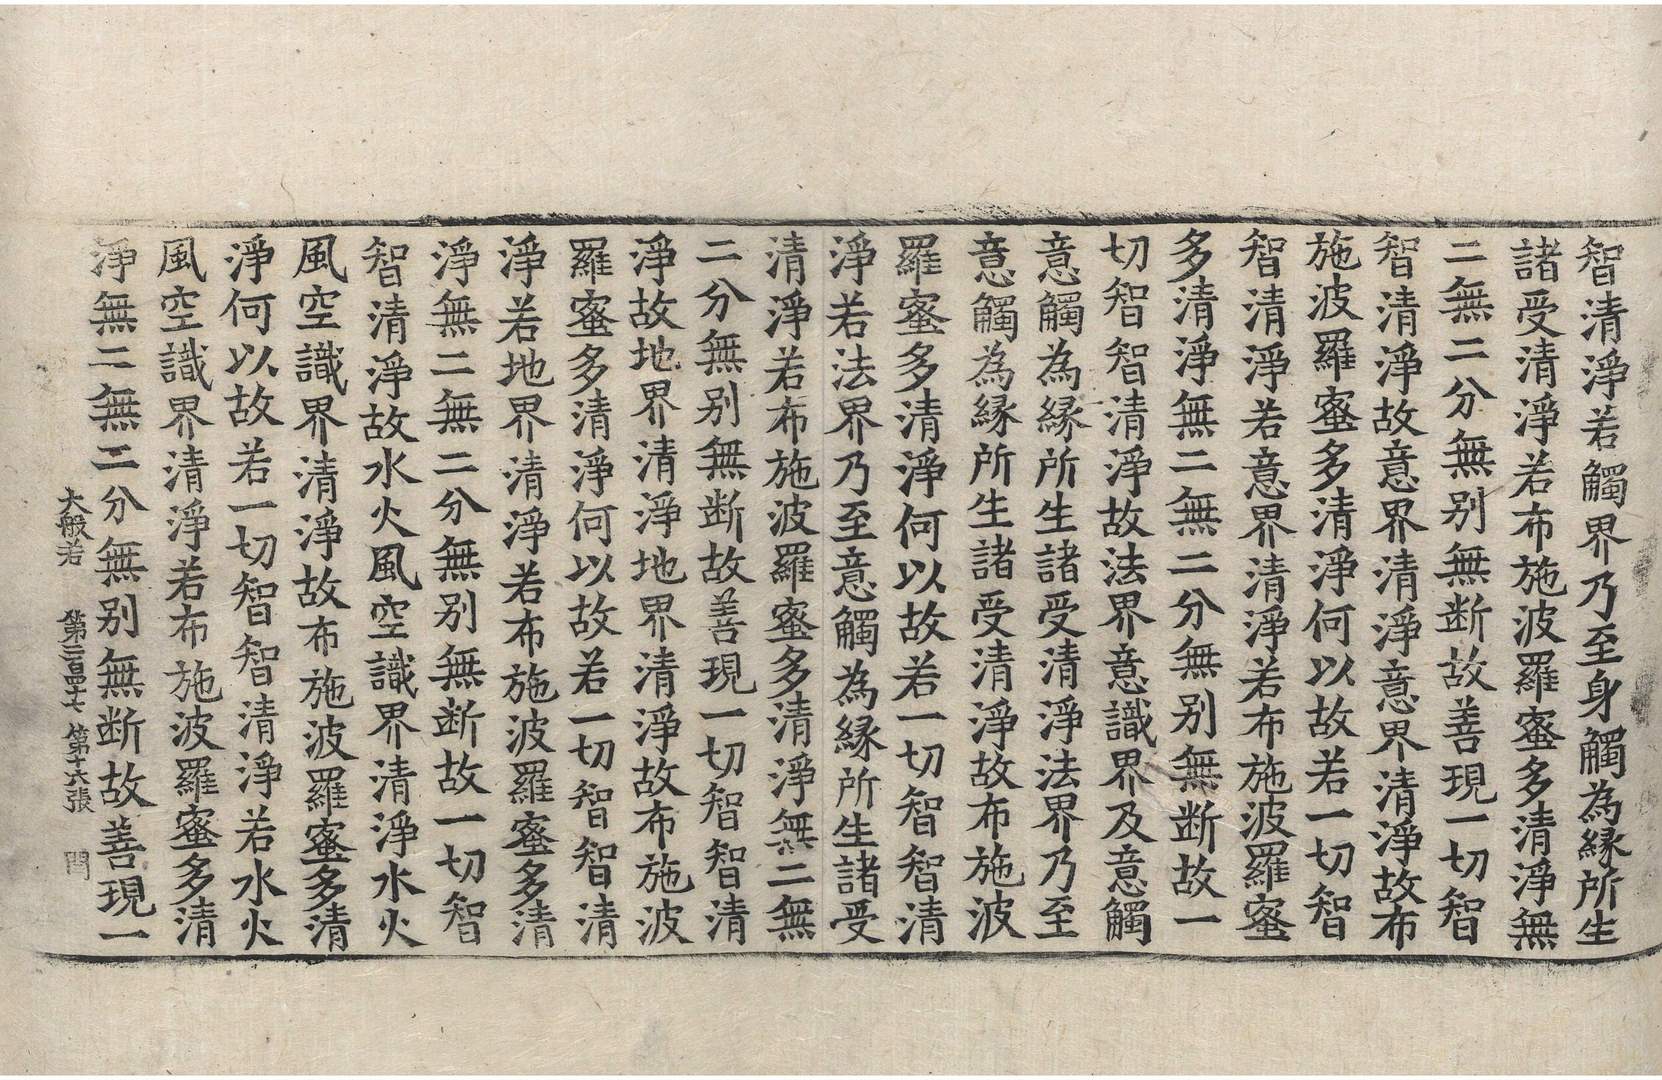 智清淨若觸界乃至身觸為縁所生
諸受清淨若布施波羅蜜多清淨無
二無二分無别無断故善現一切智
智清淨故意界清淨意界清淨故布
施波羅蜜多清淨何以故若一切智
智清淨若意界清淨若布施波羅蜜
多清淨無二無二分無别無断故一
切智智清淨故法界意識界及意觸
意觸為縁所生諸受清淨法界乃至
意觸為縁所生諸受清淨故布施波
羅蜜多清淨何以故若一切智智清
淨若法界乃至意觸為縁所生諸受
清淨若布施波羅蜜多清淨無二無
二分無别無断故善現一切智智清
淨故地界清淨地界清淨故布施波
羅蜜多清淨何以故若一切智智清
淨若地界清淨若布施波羅蜜多清
淨無二無二分無别無断故一切智
智清淨故水火風空識界清淨水火
風空識界清淨故布施波羅蜜多清
淨何以故若一切智智清淨若水火
風空識界清淨若布施波羅蜜多清
淨無二無二分無别無断故善現一
大般若 第二百四十七 第十六張